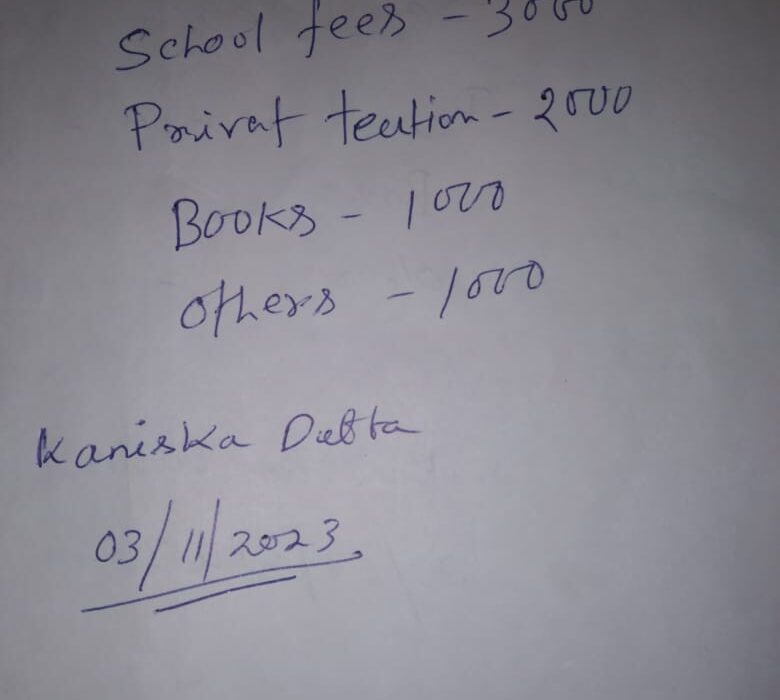 School fees - 3000
Privat teution - 2000
Books - 1000
Others - 1000
Kaniska Dutta
03/11/2023.